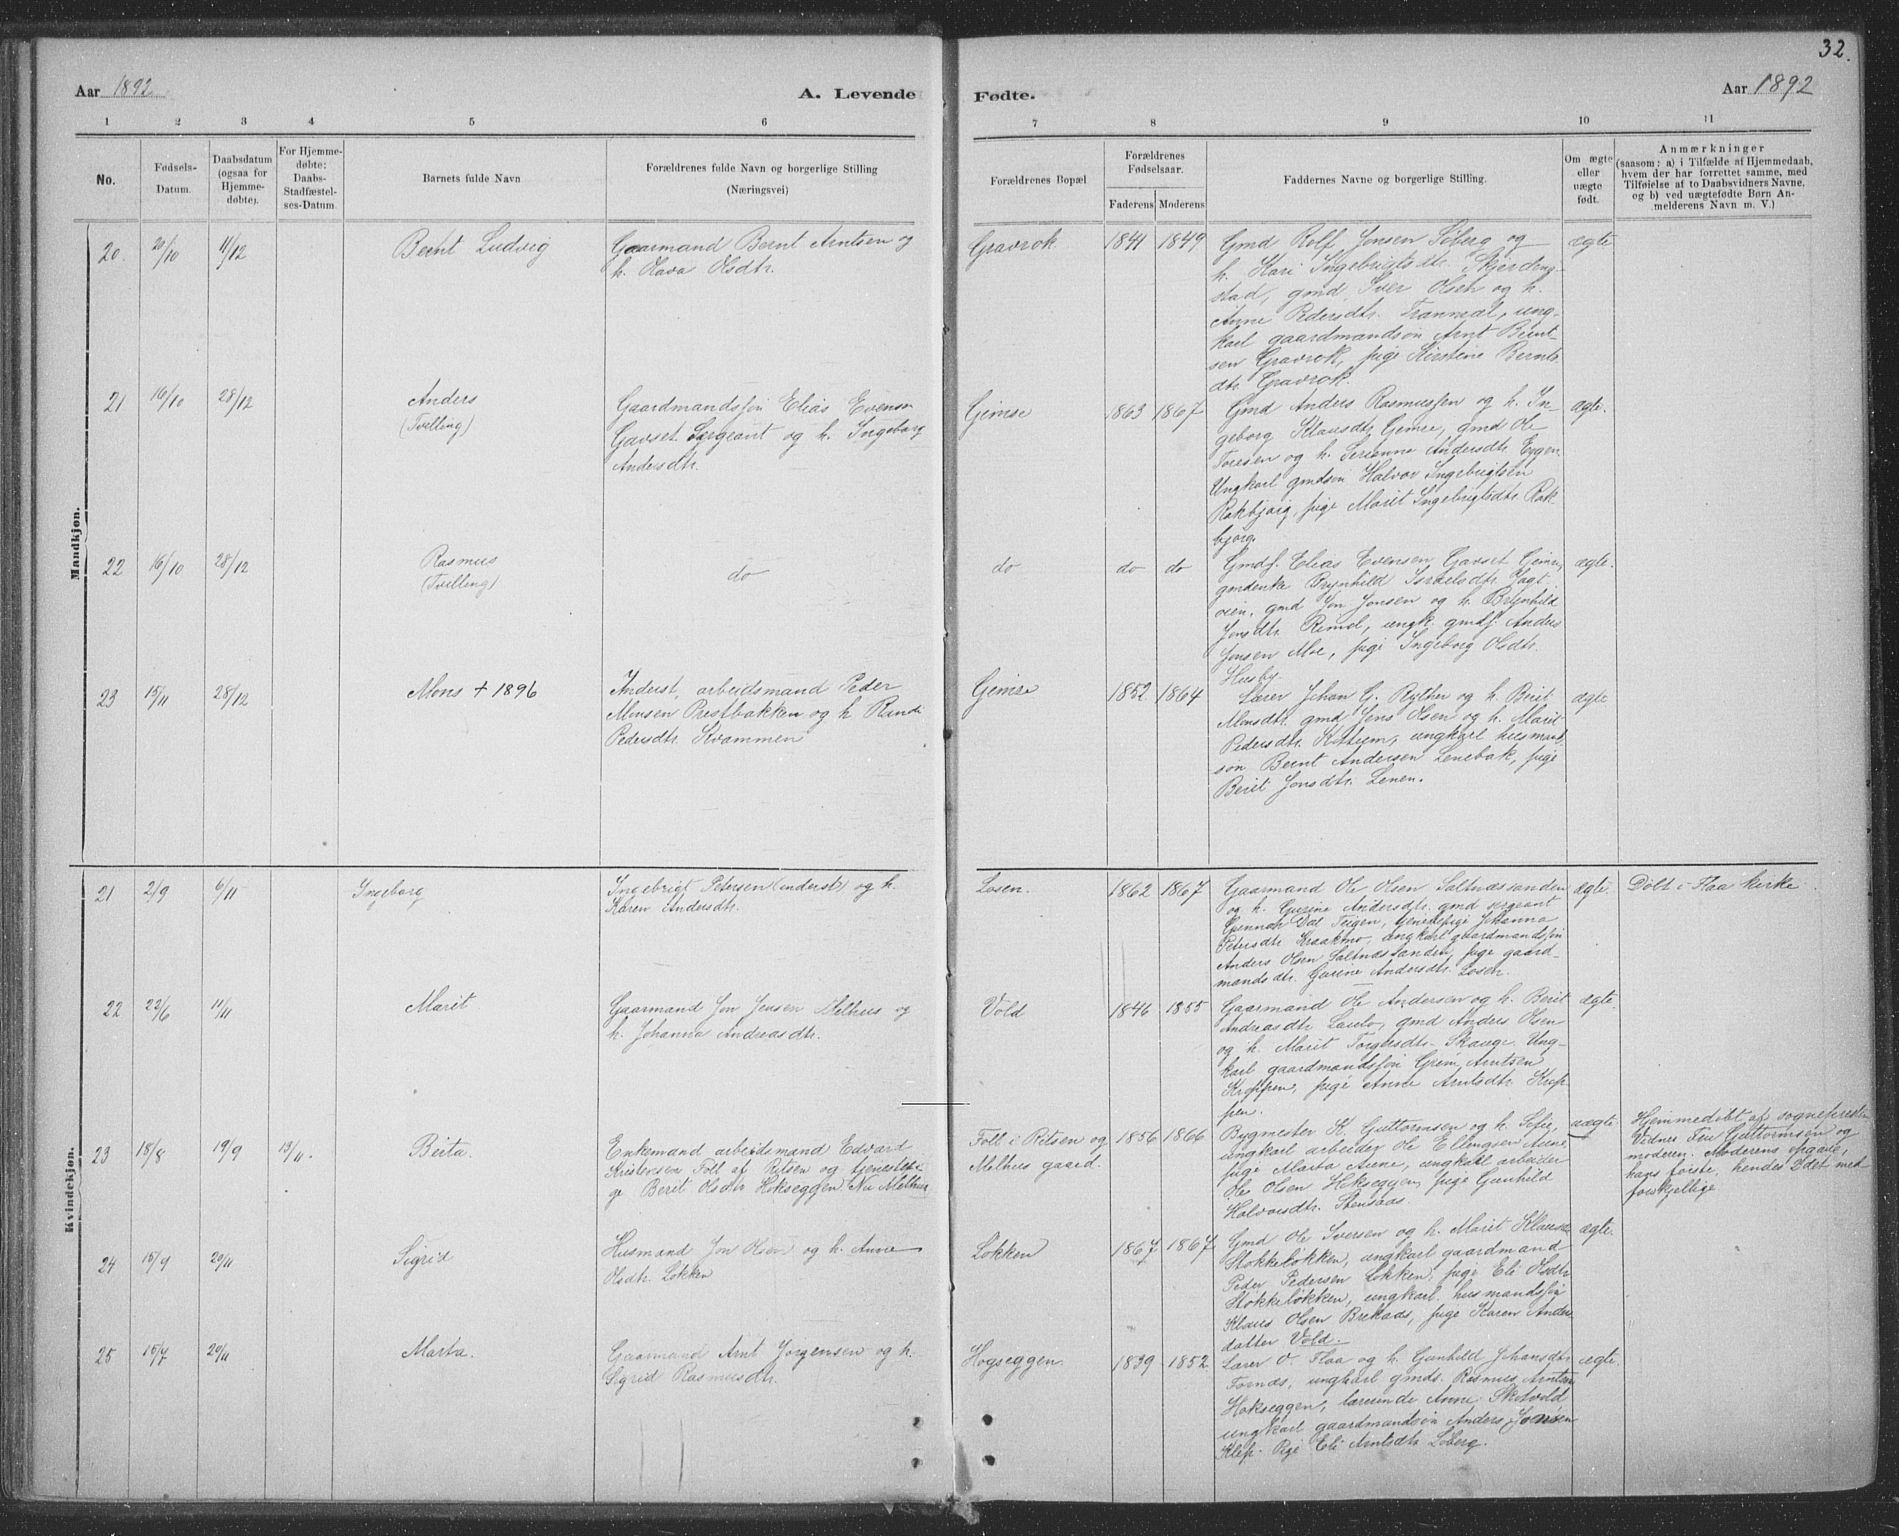 32.
Aar 1892
A. Levende Fødte.
Aar 1892
1 2 3 4 5 6 7 8 9 10 11
No.
Fødsels-
Datum.
Daabsdatum
(ogsaa for
Hjemme-
døbte).
For Hjemme-
døbte:
Daabs-
Stadfæstel-
ses-Datum.
Barnets fulde Navn
Forældrenes fulde Navn og borgerlige Stilling
(Næringsvei)
Forældrenes Bopæl
Forældrenes
Fødselsaar.
Faderens Moderens
Faddernes Navne og borgerlige Stilling.
Om ægte
eller
uægte
født.
Anmærkninger
(saasom: a) i Tilfælde af Hjemmedaab,
hvem der har forrettet samme, med
Tilføielse af to Daabsvidners Navne,
og b) ved uægtefødte Børn An-
melderens Navn m. V.)
Mandkjøn.
20. 20/10 11/12
Bernt Ludvig
Gaarmand Bernt Arntsen og
h. Olava Olsdtr.
Gravrok 1841 1849
Gmd Rolf Jonsen Søberg og
h. Kari Ingebrigtsdtr. Skjerdeng-
stad, gmd Iver Olsen og h.
Anne Pedersdtr. Tranmæl, ung-
karl gaardmandsøn Arnt Bernt-
sen Gravrok, pige Kirstine Bernts
dtr. Gravrok.
ægte
21 16/10 28/12
Anders
(Tvilling)
Gaardmandssøn Elias Evensen
Gavset Sergeant og h. Ingeborg
Andersdtr.
Gimse 1863 1867
Gmd Anders Rasmussen og h. In-
geborg Klausdtr Gimse, gmd Ole
Toresen og h. Serianna Andersdtr Eggen
Ungkarl gmdsøn Halvor Ingebrigtsen
Rokbjørg, pige Marit Ingebrigtsdtr Rok-
bjørg.
ægte.
22 16/10 28/12
Rasmus
(Tvilling)
do
do do do
Gmdf. Elias Evensen Gavset Gimse,
gmdenke Brynhild Israelsdtr Jagt-
øien, gmd Jon Jonsen og h. Brynhild
Jonsdtr Rimol, ungk. gmdf. Anders
Jonsen Moe, pige Ingeborg Olsdtr.
Husby.
ægte.
23 15/11 28/12
Mons + 1896
Inderst, arbeidsmand Peder
Monsen Prestbakken og h Randi
Pedersdtr Kvammen
Gimse 1852 1864
Lærer Johan G. Ryther og h. Berit
Monsdtr. gmd Jens Olsen og h. Marit
Pedersdtr. Kattem, ungkarl husmand-
søn Bernt Andersen Lenebak, pige
Berit Jonsdtr. Lenen.
ægte
Kvindekjøn.
21 2/9 6/11
Ingeborg
Ingebrigt Petersen (inderst) og h.
Karen Andersdtr.
Losen. 1862 1867
Gaarmand Ole Olsen Saltnæssanden
og h. Gurine Andersdtr. gmd sergeant
Dal Teigen, tjenestepige Johanna
Petersdtr Kraakmo, ungkarl gaardmandssøn
Anders Olsen Saltnæssanden, pige gaard-
mandsdtr. Gurine Andersdtr. Losen.
ægte.
Døbt i Flaa kirke
22 22/6 11/11
Marit
Gaarmand Jon Jensen Melhus og
h. Johanna Andreasdtr.
Vold 1846 1855
Gaarmand Ole Andersen og h. Berit
Andreasdtr , gmd Anders Olsen
og h. Marit Skauge. Ung-
karl gaardmandssøn Grim Arntsen
Kroppen, pige Anne Arntsdtr Krop-
pen.
ægte.
23 18/8 19/9 13/11.
Berta.
Enkemand arbeidsmand Edvard
Kristensen Foll af Ritsen og tjenestepi-
ge Berit Olsdtr Hokseggen Nu Melhus
Foll i Ritsen og
Melhus gaard. 1856 1866
Bygmester K. Guttormsen og h. Sofie,
ungkarl arbeider Ole Ellingsen Aune,
pige Marta Aune, ungkarl arbeider
Ole Olsen Hokseggen, pige Gunhild
Halvorsdtr. Stensaas.
uægte
Hjemmedøbt af sogneprest
Vidner Fru Guttormsen og
moderen. Moderens opgave,
hans første, hendes 2det med
forskjellige.
24 15/9 20/11
Sigrid
Husmand Jon Olsen og h. Anne
Olsdtr. Løkken
Løkken 1867 1867
Gmd Ole Iversen og h. Marit Klausdtr
Stokkeløkken, ungkarl gaardmand
Peder Pedersen Løkken, pige Eli Olsdtr
Stokkeløkken, ungkarl husmandssøn
Klaus Olsen Brekaas, pige Karen Anders
datter Vold.
ægte.
25 15/7 20/11
Marta.
Gaarmand Arnt Jørgensen og h.
Sigrid Rasmusdtr.
Hogseggen 1839 1852
Lærer O. Flaa og h. Gunhild Johansdtr
Fornæs, ungkarl gmds. Rasmus Arntsen
Hokseggen, lærerinde Anne Skjetvold
ungkarl gaardmandsøn Anders Jonsen
Klep. Pige Eli Arntsdtr Loberg.
ægte.